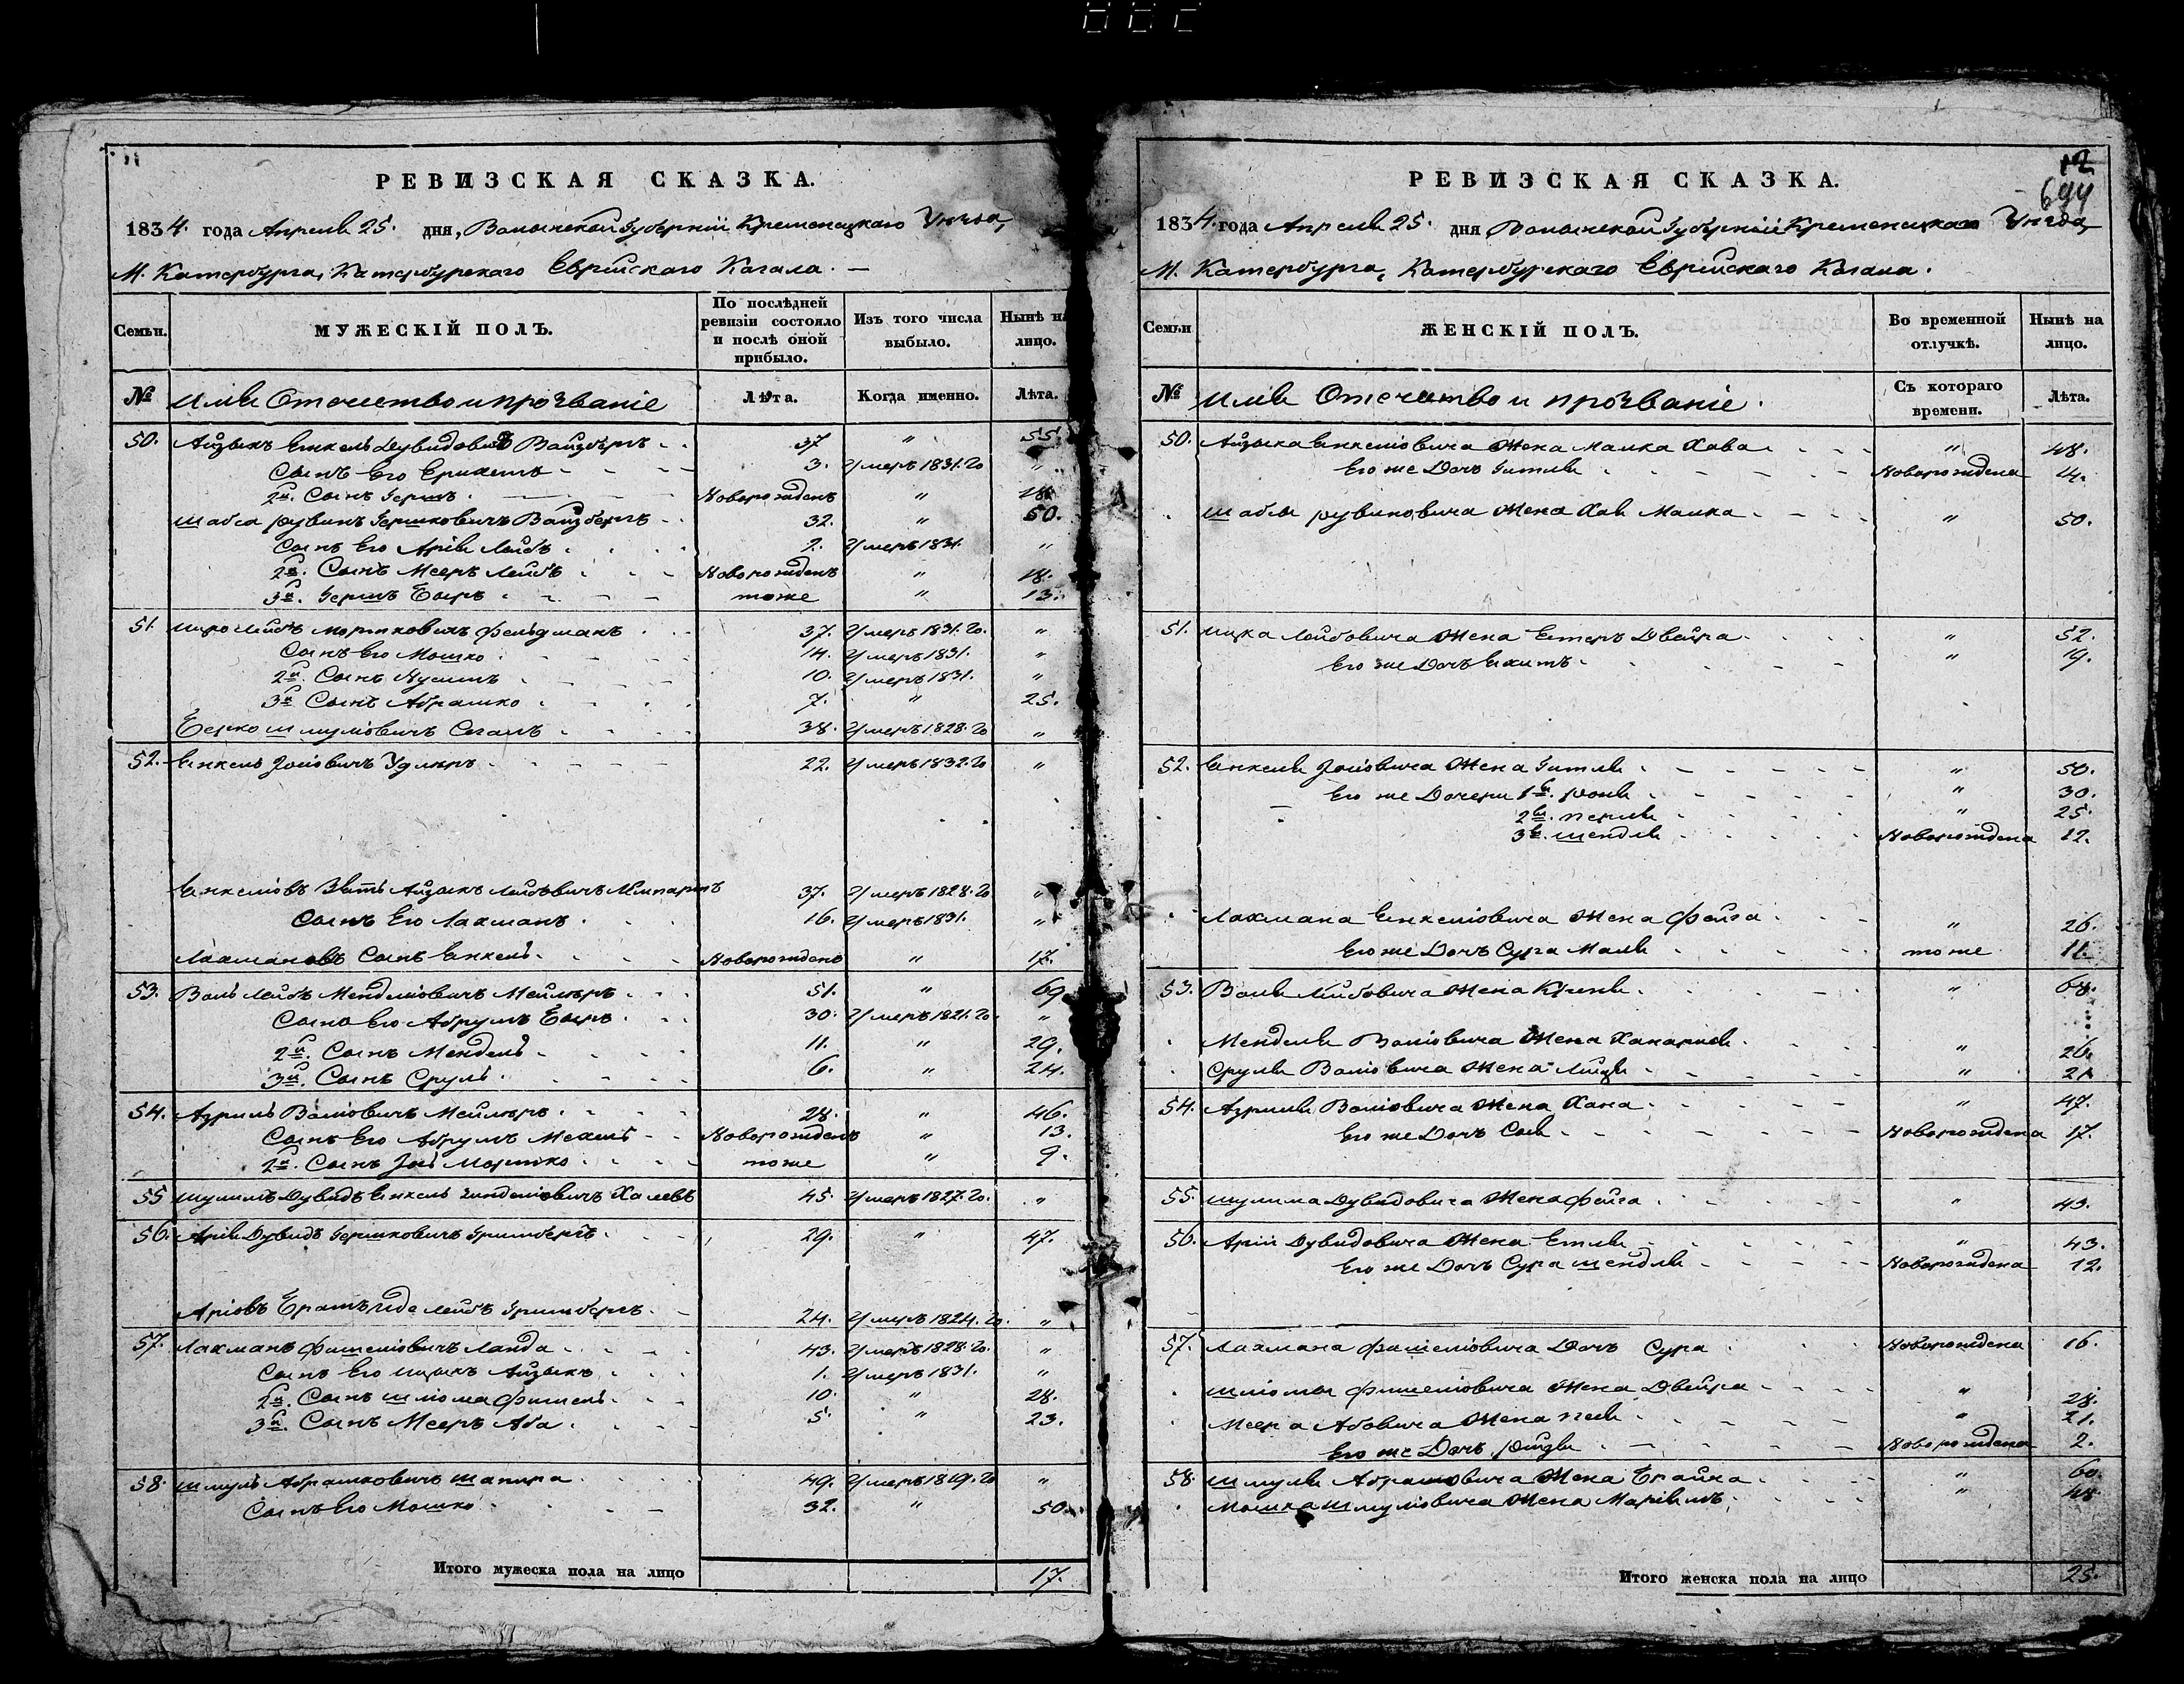 РЕВИЗСКАЯ СКАЗКА.
1834. года Апреля 25. дня, Волынской Губернiи Кременецкаго Уѣзда,
М. Катербурга, Катербурскаго Еврейскаго Кагала. —
Семьи. МУЖЕСКIЙ ПОЛЪ. По послѣдней ревизiи состояло и послѣ оной прибыло. Изъ того числа выбыло. Нынѣ на лицо.
№ Имя Отечество и прозванiе Лѣта. Когда именно. Лѣта.
50. Айзыкъ Енкель Дувидовичъ Вайзбергъ 37 " 55.
Сынъ Его 3. Умеръ 1831. го "
2й. Сынъ Герш Новорожденъ " 18.
Шабса Рувинъ Гершковичъ Вайзбергъ 32. " 50.
Сынъ Его Арiя Лейбъ 2. Умеръ 1831. "
2й. Сынъ Мееръ Лейбъ Новорожденъ " 18.
3й. Гершъ Беръ тоже " 13.
51. Ицко Лейбъ Мортковичъ Фельдманъ 37. Умеръ 1831. го. "
Сынъ Его Мошко 14. Умеръ 1831. "
2й. Сынъ Нусимъ 10. Умеръ 1831. "
3й Сынъ Абрашко 7. " 25.
Берко Шмулiовичъ Сегалъ 38. Умеръ 1828. го "
52. Енкель Iослiовичъ 22. Умеръ 1832. го "
Енкелiовъ Зять Айзыкъ Лейбовичъ 37. Умеръ 1828. го "
Сынъ Его Лахманъ 16. Умеръ 1831. "
Лахмановъ Сынъ Енкель Новорожденъ " 17.
53. Воль Лейбъ Менделiовичъ Мейлеръ 51. " 69
Сынъ Его Абрумъ Беръ 30. Умеръ 1821. го "
2й. Сынъ Мендель 11. " 29.
3й. Сынъ Сруль 6. " 24.
54. Азриль Волiовичъ Мейлеръ 28. " 46.
Сынъ Его Абрумъ Мехель Новорожденъ " 13.
2й. Сынъ Iось Мортко тоже " 9.
55 Шулимъ Дувидъ Енкель Зинделiовичъ Халевъ 45. Умеръ 1827. го. "
56. Арiя Дувидъ Гершковичъ Гринбергъ 29. " 47.
Арiовъ Братъ Иде Лейбъ Гринбергъ 24. Умеръ 1824. го. "
57. Лахманъ Фишелiовичъ Ланда 43. Умеръ 1828. го. "
Сынъ Его Ицыкъ Айзыкъ 1. Умеръ 1831. "
2й. Сынъ Шлiома Фишель 10. " 28.
3й. Сынъ Мееръ Аба 5. " 23.
58. Шмуль Абрашковичъ Шапира 49. Умеръ 1819. го "
Сынъ Его Мошко 32. " 50.
Итого мужеска пола на лицо 17.
12
694
РЕВИЗСКАЯ СКАЗКА.
1834. года Апреля 25. дня Волынской Губернiи Кременецкаго Уѣзда,
М. Катербурга, Катербурскаго Еврейскаго Кагала.
Семьи ЖЕНСКIЙ ПОЛЪ. Во временной отлучкѣ. Нынѣ на лицо.
№ Имя Отечество и прозванiе. Съ котораго времени. Лѣта.
50. Айзыка Енкелiовича Жена Малка Хава " 48.
Его же Дочь Гитля Новорождена 14.
Шабсы Рувиновича Жена Хая Малка " 50.
51. Ицка Лейбовича Жена Естеръ Двейра " 52.
Его же Дочь " 19.
52. Енкеля Iослiовича Жена Гитля " 50.
Его же Дочери 1я. Роня " 30.
2я. Перля " 25.
3я. Шендля Новорождена 12.
Лахмана Енкелiовича Жена Фейга " 26.
Его же Дочь Сура Маля тоже 11.
53. Воля Лейбовича Жена " 68.
Менделя Волiовича Жена " 26.
Сруля Волiовича Жена " 21
54. Азриля Волiовича Жена Хана " 47.
Его же Дочь Сося Новорождена 17.
55. Шулима Дувидовича Жена Фейга " 43.
56. Арiи Дувидовича Жена Етля " 43.
Его же Дочь Сура Шендля Новорождена 12.
57. Лахмана Фишелiовича Дочь Сура Новорождена 16.
Шлiомы Фишелiовича Жена Двейра " 28.
Меера Абовича Жена Песя " 21.
Его же Дочь Рейзя Новорождена 2.
58. Шмуля Абрашовича Жена Брайна " 60.
Мошка Шмулiовича Жена Марiямъ " 48
Итого женска пола на лицо 25.